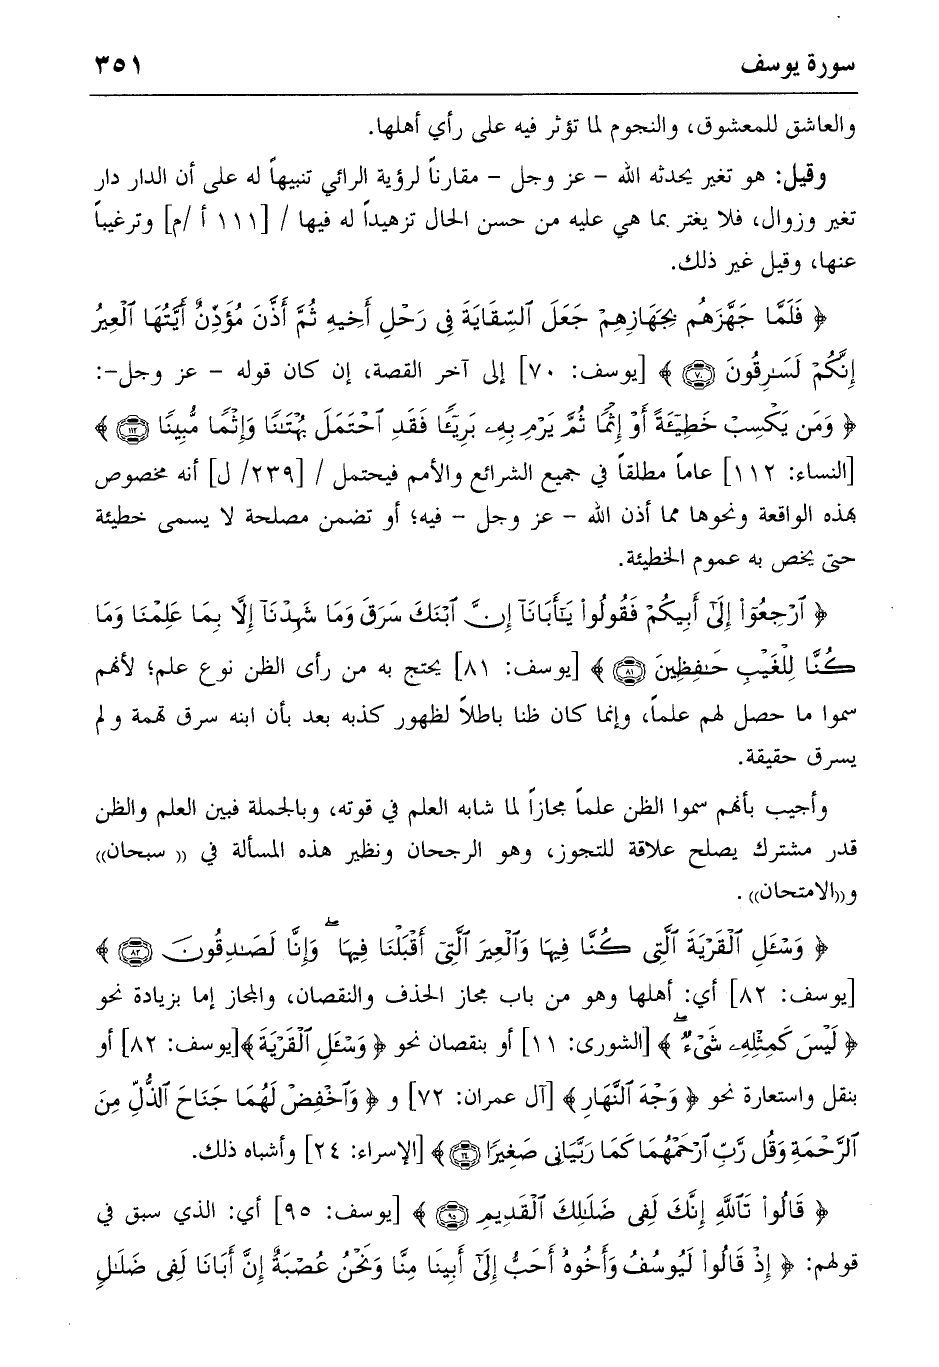 سورة يوسف ٣٥١
والعاشق للمعشوق، والنجوم لما تؤثر فيه على رأي أهلها.
وقيل: هو تغير يحدثه الله - عز وجل - مقارناً لرؤية الرائي تنبيهاً له على أن الدار دار
تغير وزوال، فلا يغتر بما هي عليه من حسن الحال تزهيداً له فيها / [١١١ أ /م] وترغيباً
عنها، وقيل غير ذلك.
﴿ فَلَمَّا جَهَّزَهُم بِجَهَازِهِمْ جَعَلَ ٱلسِّقَايَةَ فِى رَحْلِ أَخِيهِ ثُمَّ أَذَّنَ مُؤَذِّنٌ أَيَّتُهَا ٱلْعِيرُ
إِنَّكُمْ لَسَٰرِقُونَ ٧٠ ﴾ [يوسف: ٧٠] إلى آخر القصة، إن كان قوله - عز وجل-:
﴿ وَمَن يَكْسِبْ خَطِيٓـَٔةً أَوْ إِثْمًا ثُمَّ يَرْمِ بِهِۦ بَرِيٓـًٔا فَقَدِ ٱحْتَمَلَ بُهْتَٰنًا وَإِثْمًا مُّبِينًا ١١٢ ﴾
[النساء: ١١٢] عاماً مطلقاً في جميع الشرائع والأمم فيحتمل / [٢٣٩/ ل] أنه مخصوص
بهذه الواقعة ونحوها مما أذن الله - عز وجل - فيه؛ أو تضمن مصلحة لا يسمى خطيئة
حتى يخص به عموم الخطيئة.
﴿ ٱرْجِعُوٓا۟ إِلَىٰٓ أَبِيكُمْ فَقُولُوا۟ يَٰٓأَبَانَآ إِنَّ ٱبْنَكَ سَرَقَ وَمَا شَهِدْنَآ إِلَّا بِمَا عَلِمْنَا وَمَا
كُنَّا لِلْغَيْبِ حَٰفِظِينَ ٨١ ﴾ [يوسف: ٨١] يحتج به من رأى الظن نوع علم؛ لأنهم
سموا ما حصل لهم علماً، وإنما كان ظنا باطلاً لظهور كذبه بعد بأن ابنه سرق تهمة و لم
يسرق حقيقة.
وأجيب بأنهم سموا الظن علماً مجازاً لما شابه العلم في قوته، وبالجملة فبين العلم والظن
قدر مشترك يصلح علاقة للتجوز، وهو الرجحان ونظير هذه المسألة في (( سبحان))
و((الامتحان)) .
﴿ وَسْـَٔلِ ٱلْقَرْيَةَ ٱلَّتِى كُنَّا فِيهَا وَٱلْعِيرَ ٱلَّتِىٓ أَقْبَلْنَا فِيهَا ۖ وَإِنَّا لَصَٰدِقُونَ ٨٢ ﴾
[يوسف: ٨٢] أي: أهلها وهو من باب مجاز الحذف والنقصان، والمجاز إما بزيادة نحو
﴿ لَيْسَ كَمِثْلِهِۦ شَىْءٌ ۖ ﴾ [الشورى: ١١] أو بنقصان نحو ﴿ وَسْـَٔلِ ٱلْقَرْيَةَ ﴾[يوسف: ٨٢] أو
بنقل واستعارة نحو ﴿ وَجْهَ ٱلنَّهَارِ ﴾ [آل عمران: ٧٢] و ﴿ وَٱخْفِضْ لَهُمَا جَنَاحَ ٱلذُّلِّ مِنَ
ٱلرَّحْمَةِ وَقُل رَّبِّ ٱرْحَمْهُمَا كَمَا رَبَّيَانِى صَغِيرًا ٢٤ ﴾ [الإسراء: ٢٤] وأشباه ذلك.
﴿ قَالُوا۟ تَٱللَّهِ إِنَّكَ لَفِى ضَلَٰلِكَ ٱلْقَدِيمِ ٩٥ ﴾ [يوسف: ٩٥] أي: الذي سبق في
قولهم: ﴿ إِذْ قَالُوا۟ لَيُوسُفُ وَأَخُوهُ أَحَبُّ إِلَىٰٓ أَبِينَا مِنَّا وَنَحْنُ عُصْبَةٌ إِنَّ أَبَانَا لَفِى ضَلَٰلٍ